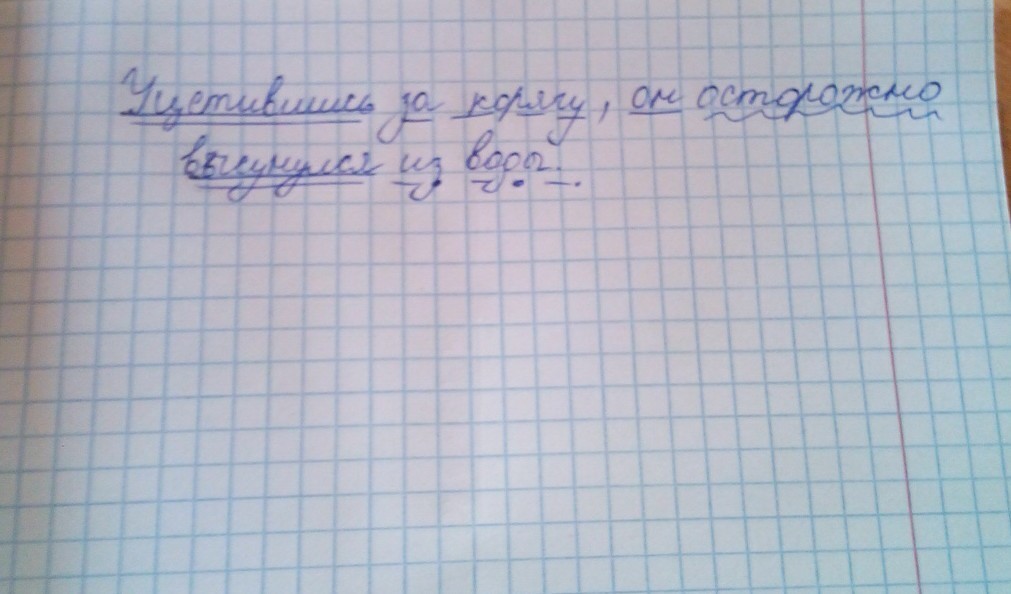 Уцепившись за корягу, он осторожно
высунулся из воды.